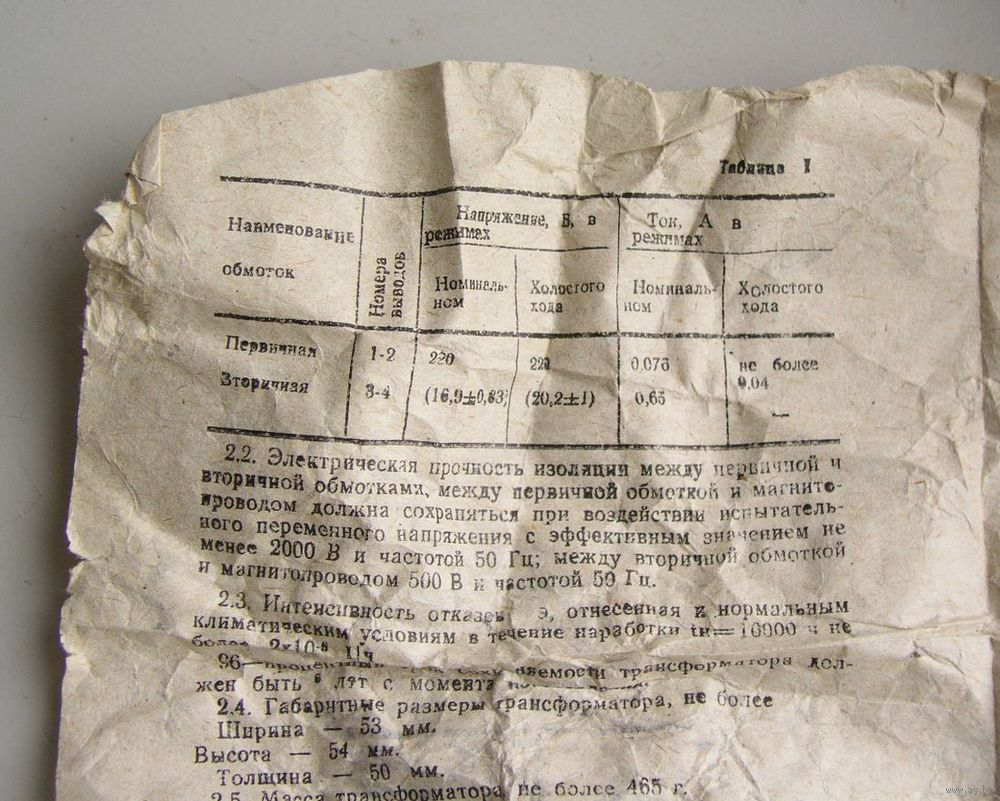 Таблица 1
Наименование обмоток
Номера выводов
Напряжение, В, в режимах
Ток, А в режимах
Номиналь-ном
Холостого хода
Номиналь-ном
Холостого хода
Первичная 1-2 220 220 0,076 не более 0,04
Вторичная 3-4 (16,9±0,83) (20,2±1) 0,65 —
2.2. Электрическая прочность изоляции между первичной и
вторичной обмотками, между первичной обмоткой и магнито-
проводом должна сохраняться при воздействии испытатель-
ного переменного напряжения с эффективным значением не
менее 2000 В и частотой 50 Гц; между вторичной обмоткой
и магнитопроводом 500 В и частотой 50 Гц.
2.3. Интенсивность отказов э, отнесенная к нормальным
климатическим условиям в течение наработки tн=10000 ч не
более 1/ч
процентный трансформатора дол-
жен быть лет с момента
2.4. Габаритные размеры трансформатора, не более
Ширина — 53 мм.
Высота — 54 мм.
Толщина — 50 мм.
2.5. Масса трансформатора, не более 465 г.
www.ay.by